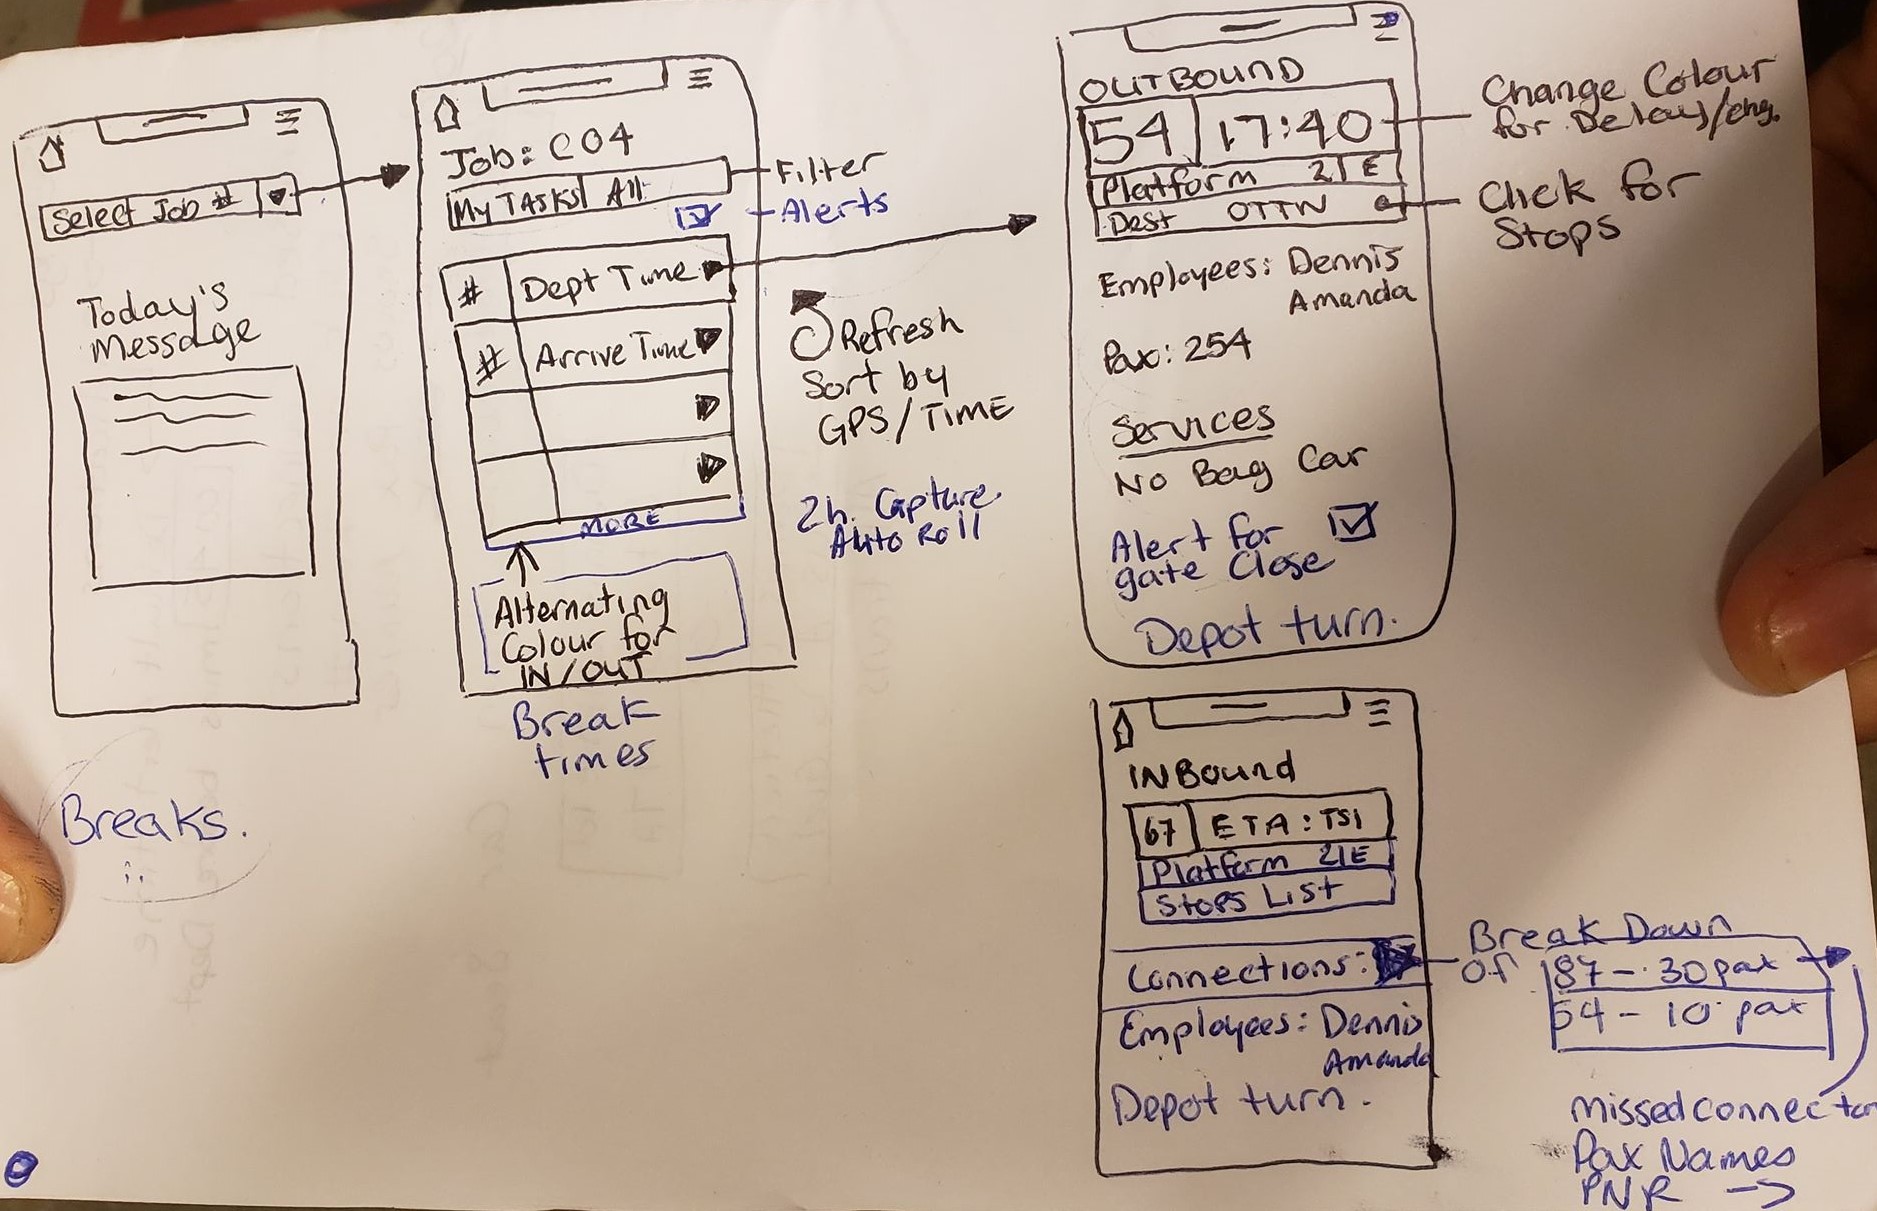 Select Job #
Today's
Message
Breaks.
Job: C04
My TASKS All
Filter
Alerts
# Dept Time
# Arrive Time
MORE
Alternating
Colour for
IN/OUT
Break
times
Refresh
Sort by
GPS/TIME
2h. Capture
Auto Roll
OUTBOUND
54 17:40
Platform 21 E
Dest OTTW
Change Colour
for Delay/chg.
Click for
Stops
Employees: Dennis
Amanda
Pax: 254
Services
No Bag Car
Alert for
gate Close
Depot turn.
INBound
67 ETA: TSI
Platform 21E
Stops List
Connections:
Employees: Dennis
Amanda
Depot turn.
Break Down
of
87 - 30 pax
54 - 10 pax
missed connect
Pax Names
PNR